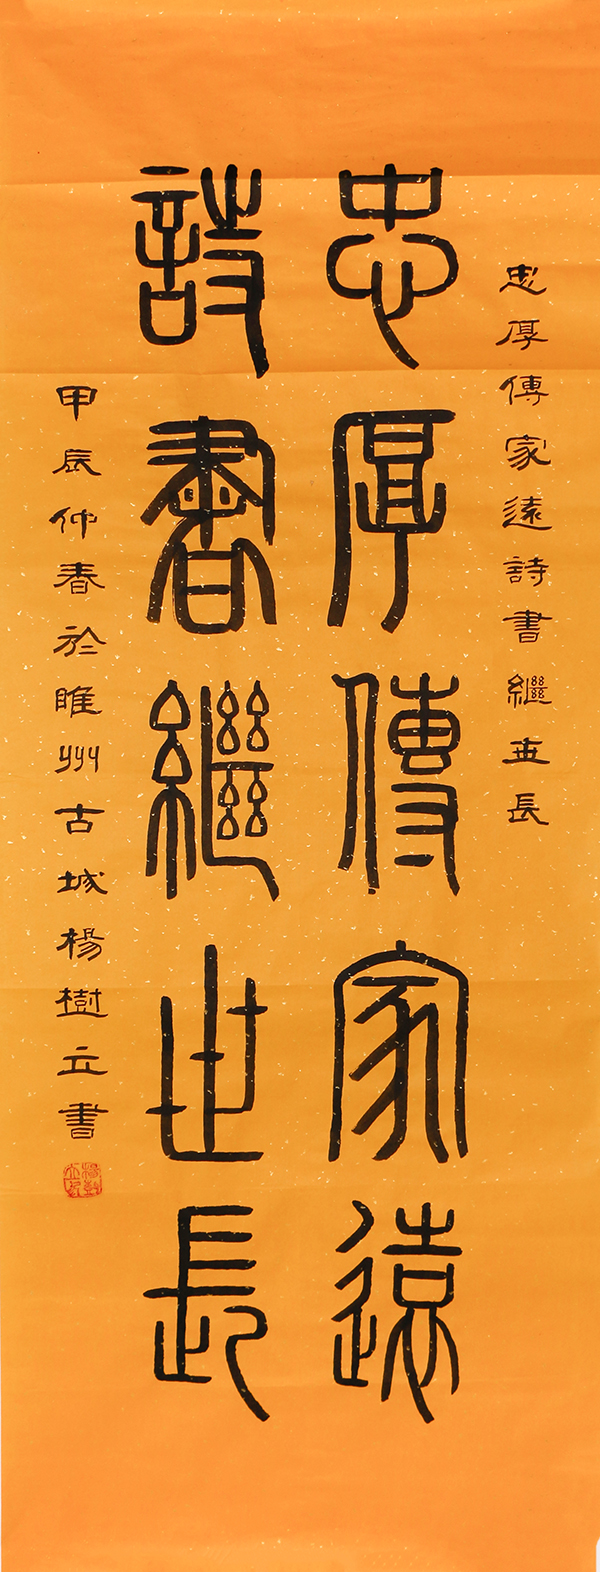 忠厚傳家遠詩書繼世長
忠厚傳家遠
詩書繼世長
甲辰仲春於睢州古城楊樹立書